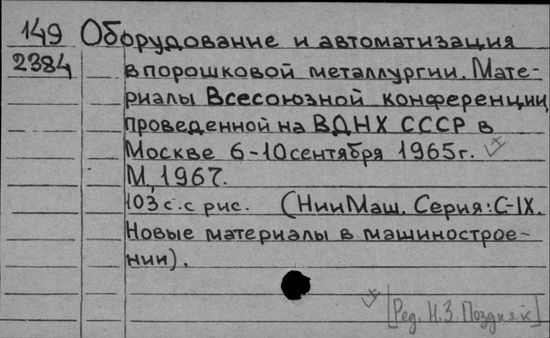 149 Оборудование и автоматизация
2384 в порошковой металлургии. Мате-
риалы Всесоюзной конференции,
проведенной на ВДНХ СССР в
Москве 6-10 сентября 1965г.
М, 1967.
103 с. с рис. (НииМаш. Серия: С-IX.
Новые материалы в машинострое-
нии).
[Ред. Н.З. Поздняк]